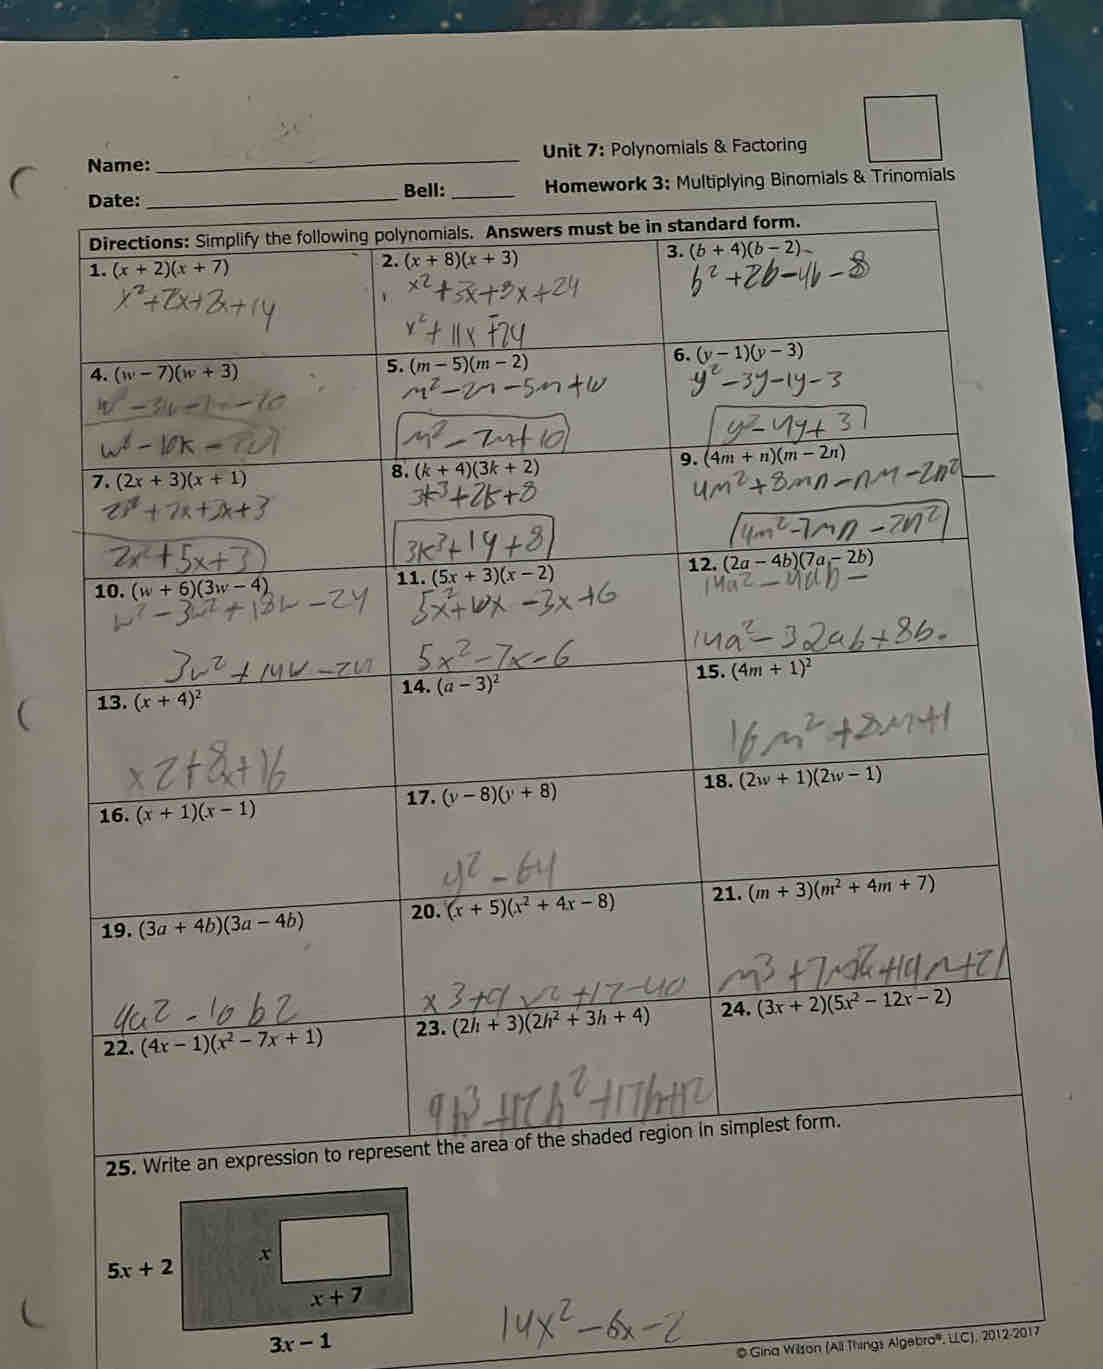 Name:
Unit 7: Polynomials & Factoring
Date:
Bell:
Homework 3: Multiplying Binomials & Trinomials
Directions: Simplify the following polynomials. Answers must be in standard form.
1. (x + 2)(x + 7)
x² + 7x + 2x + 14
2. (x + 8)(x + 3)
x² + 3x + 8x + 24
x² + 11x + 24
3. (b + 4)(b − 2)
b² + 2b − 4b − 8
4. (w − 7)(w + 3)
5. (m − 5)(m − 2)
m² − 2m − 5m + 10
m² − 7m + 10
6. (y − 1)(y − 3)
y² − 3y − 1y − 3
y² − 4y + 3
7. (2x + 3)(x + 1)
2x² + 2x + 3x + 3
2x² + 5x + 3
8. (k + 4)(3k + 2)
3k³ + 2k + 8
3k³ + 14 + 8
9. (4m + n)(m − 2n)
4m² + 8mn − nm − 2n²
4m² − 7mn − 2n²
10. (w + 6)(3w − 4)
w² − 3w² + 18w − 24
3w² + 14w − 24
11. (5x + 3)(x − 2)
5x² + 10x − 3x + 6
5x² − 7x − 6
12. (2a − 4b)(7a − 2b)
14a² − 4ab −
14a² − 32ab + 8b.
13. (x + 4)²
x2 + 8x + 16
14. (a − 3)²
15. (4m + 1)²
16m² + 8m + 1
16. (x + 1)(x − 1)
17. (y − 8)(y + 8)
y² − 64
18. (2w + 1)(2w − 1)
19. (3a + 4b)(3a − 4b)
9a2 − 16b2
20. (x + 5)(x² + 4x − 8)
x3 + 9x2 + 12 − 40
21. (m + 3)(m² + 4m + 7)
22. (4x − 1)(x² − 7x + 1)
23. (2h + 3)(2h² + 3h + 4)
24. (3x + 2)(5x² − 12x − 2)
25. Write an expression to represent the area of the shaded region in simplest form.
5x + 2
x
x + 7
3x − 1
14x² − 6x − 2
© Gina Wilson (All Things Algebra®, LLC), 2012-2017